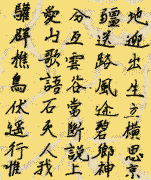 地逈出生方橫思京
疆送路風途碧鄉神
分互雲谷當斷説上
愛山歌語石天人我
驪群樵鳥伏遥行惟